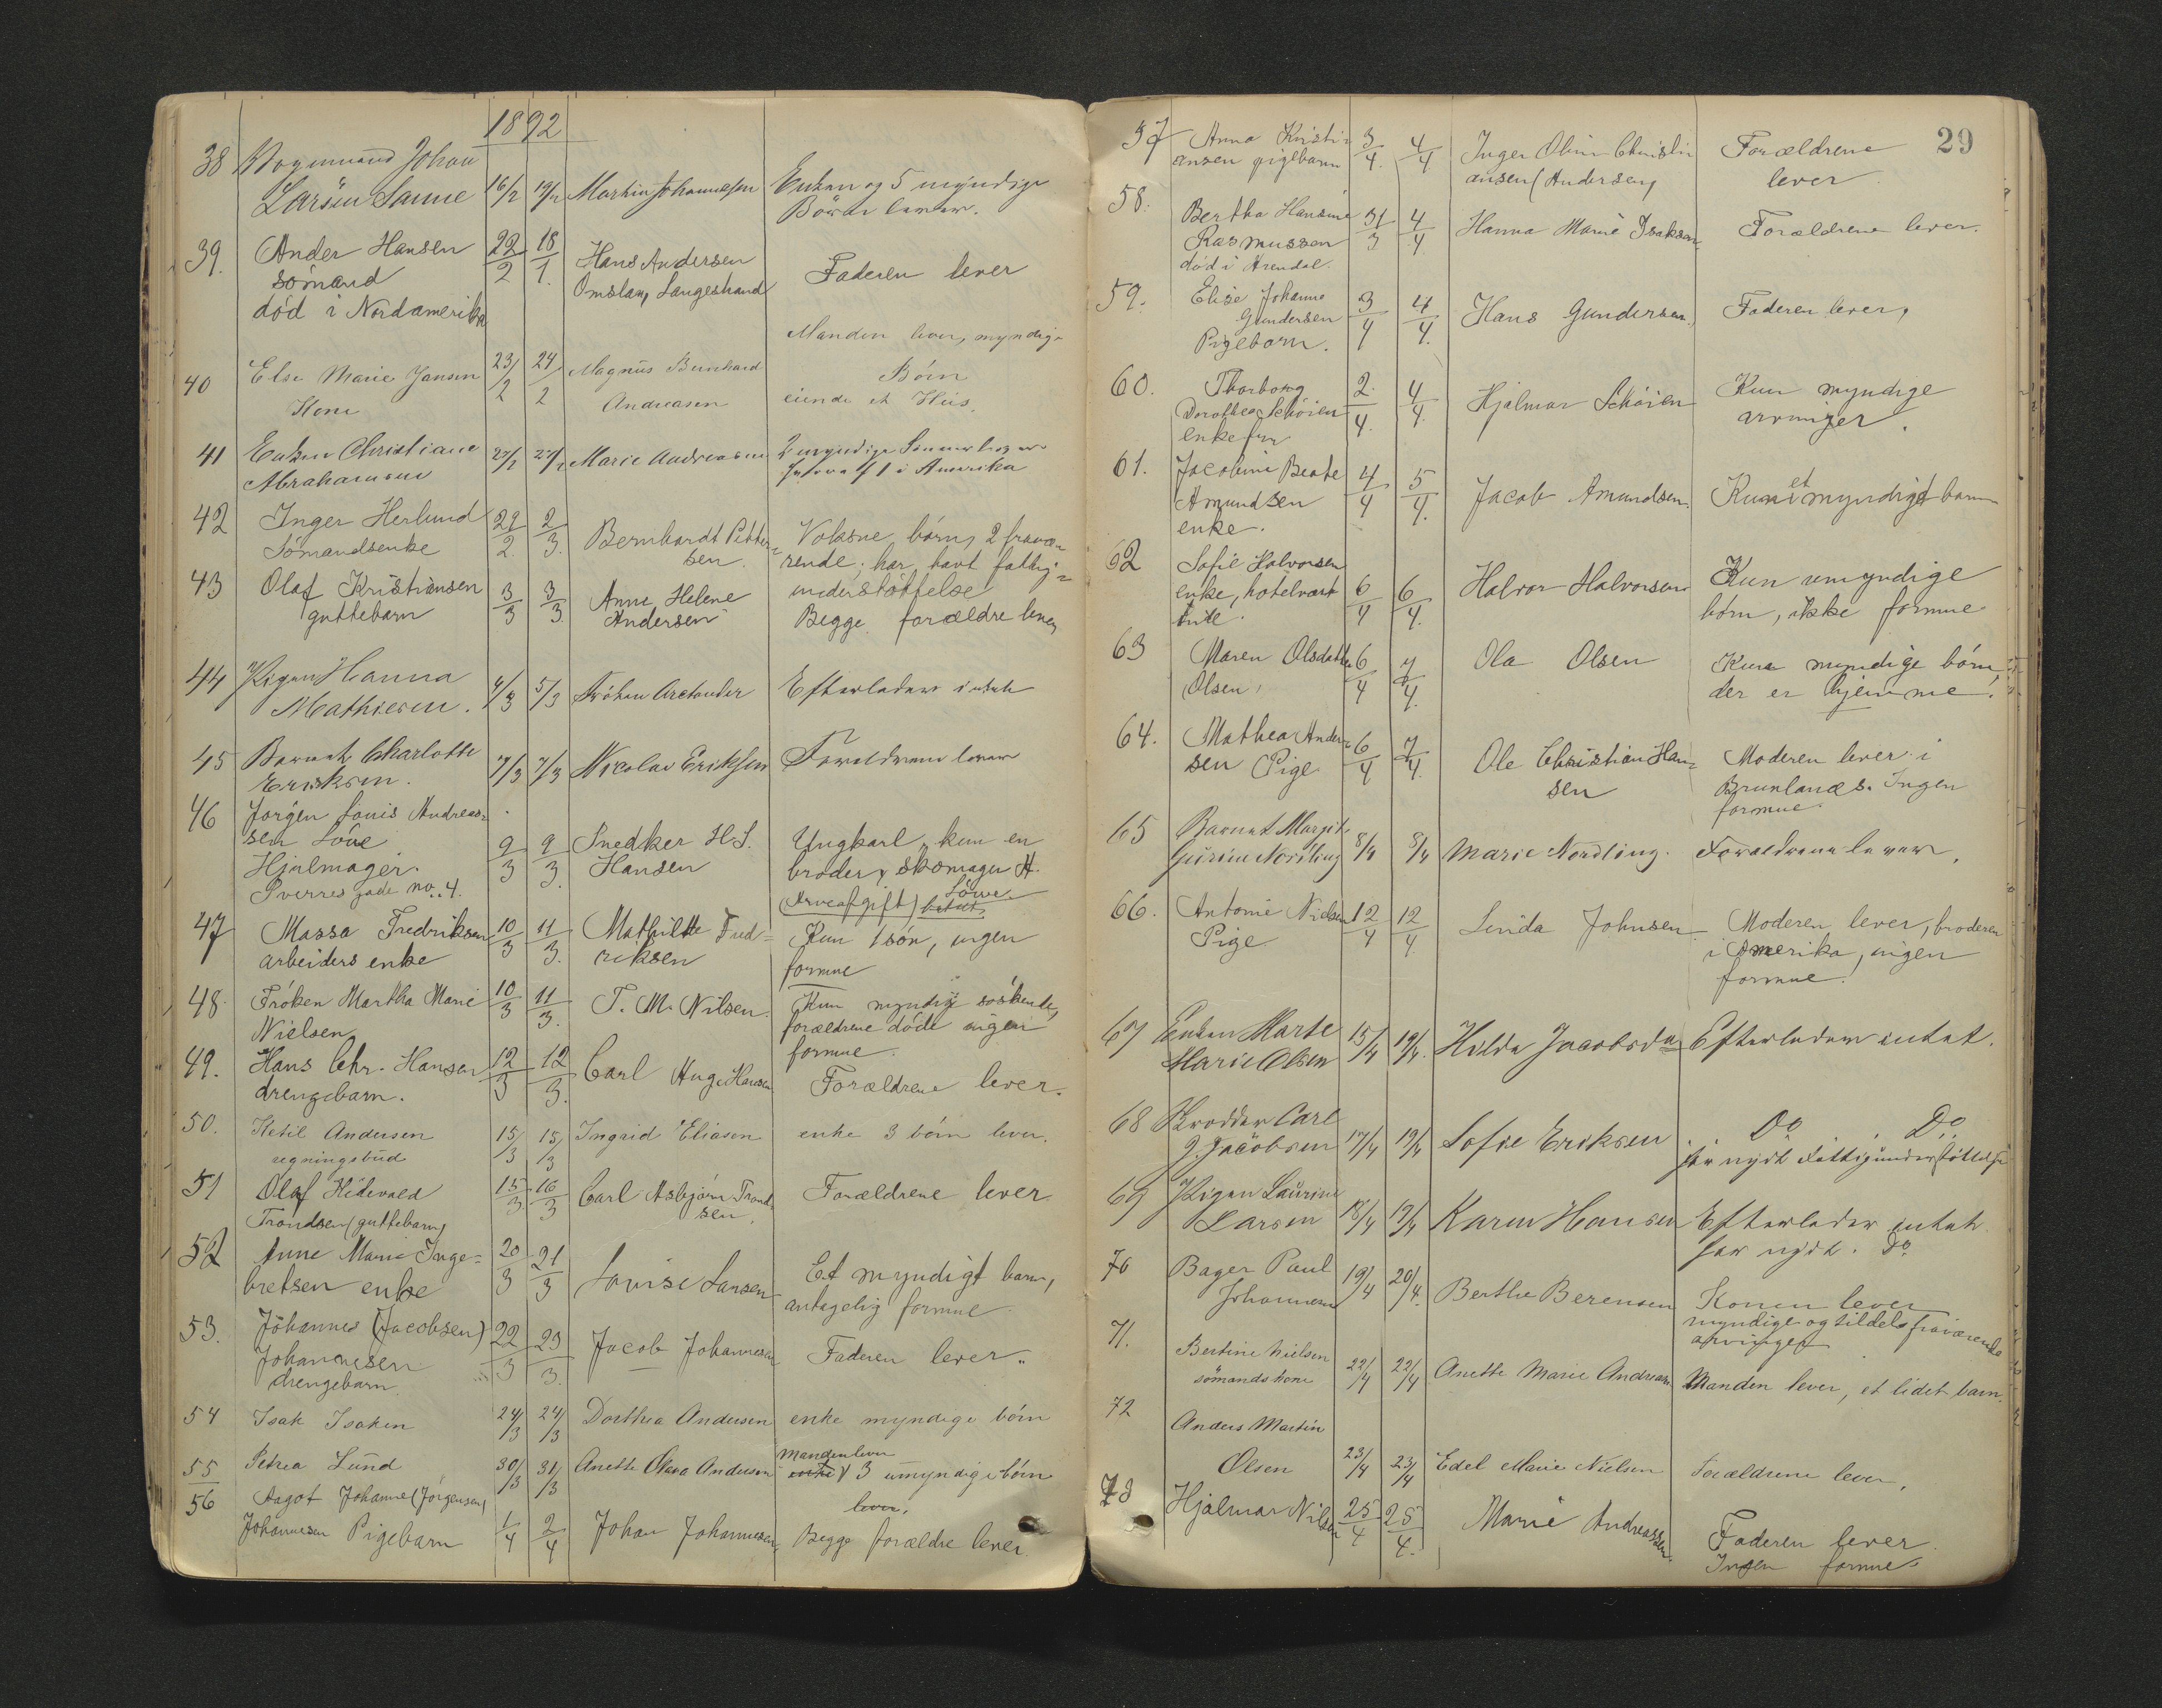 1892
38 Johan Larsen Sanne 16/2 19/2 Martin Johannessen Enken og 5 myndige
Börn lever.
39. Ander Hansen 22/2 18/1. Hans Andersen Faderen lever
sömand Omslaw, Langestrand
död i Nordamerika
40 Else Marie Jansen 23/2 24/2 Magnus Bernhard Manden lever, myndige
Kone Andreasen Börn
eiende et Hus.
41 Enken Christiane 27/2 Marie Andreasen 2 myndige
Abrahamsen 1 i Amerika
42 Inger Herlund 29/2. 2/3. Bernhardt Petter= Voksne börn, 2 fravæ=
Sömandsenke sen. rende; har havt fattig=
understöttelse
43 Olaf Kristiansen 3/3 3/3. Anne Helene Begge forældre lever
guttebarn Andersen
44 Pigen Hanna 4/3 5/3 Fröken Arctander Efterlader intet
Mathiesen.
45 Barnet Charlotte 7/3 7/3 Nicolai Eriksen Forældrene lever
Eriksen.
46 Jørgen Louis Andreas= 9/3 9/3. Snedker H. S. Ungkarl, kun en
sen Löve Hansen broder, skomager A.
Hjulmager. Löwe
Sverres gade no. 4. (Arveafgift) betalt
47 Massa Fredriksen 10/3 11/3. Mathilde Fred= Kun 1 sön, ingen
arbeiders enke riksen formue
48. Fröken Martha Marie 10/3 11/3. T. M. Nilsen. Kun myndige söskende,
Nielsen forældrene döde ingen
formue.
49. Hans Chr. Hansen 12/3 12/3. Carl Aug. Hansen Forældrene lever.
drengebarn.
50. Ketil Andersen 15/3 15/3 Ingrid Eliasen enke 3 börn lever.
regningsbud
51 Olaf Hidevald 15/3 16/3 Carl Asbjörn Trond Forældrene lever
Trondsen (guttebarn) sen.
52 Anne Marie Inge= 20/3 21/3 Lovise Larsen Et myndigt barn,
bretsen enke antagelig formue
53. Jöhannes (Jacobsen) 22/3 23/3. Jacob Johannesen Faderen lever.
Johannesen
drengebarn
54 Isak Isaksen 24/3 24/3 Dorthea Andersen enke myndige börn
55 Petrea Lund 30/3 31/3 Anette Olava Andersen manden lever
enke 3 umyndige börn
lever.
56 Aagot Johanne (Jörgensen) 1/4 2/4 Johan Johannesen, Begge forældre lever.
Johannesen Pigebarn
29
57 Anna Kristi= 3/4. 4/4 Inger Oline Christi Forældrene
ansen pigebarn ansen (Andersen) lever
58. Bertha Hansine 31/3 4/4 Hanna Marie Isaksen Forældrene lever.
Rasmussen
död i Arendal.
59. Elise Johanne 3/4 4/4. Hans Gundersen. Faderen lever,
Gundersen
Pigebarn.
60. Thorborg 2/4. 4/4. Hjalmar Schöien Kun myndige
Dorothea Schöien arvinger.
enkefru
61. Jacobine Beate 4/4 5/4. Jacob Amundsen. Kun et myndigt barn
Amundsen
enke.
62 Sofie Halvorsen 6/4 6/4. Halvor Halvorsen Kun umyndige
enke, hotelvært börn, ikke formue
inde.
63 Maren Olsdatter 6/4 7/4. Ola Olsen Kun myndige börn,
Olsen, der er hjemme.
64. Mathea Ander= 6/4 7/4. Ole Christian Han= Moderen lever i
sen Pige sen Brunlanæs. Ingen
formue.
65 Barnet Margit 8/4 8/4 Marie Nordling. Forældrene lever.
Nordling
66. Antonie Nielsen 12/4 12/4. Linda Johnsen Moderen lever, broderen
Pige i Amerika, ingen
formue.
67 Enken Marte 15/4 19/4. Hilda Jacobsda= Efterlader intet.
Marie Olsen
68 Carl 17/4 19/4 Sofie Eriksen Do Do
J. Jacobsen har nydt Fattigunderstöttelse
69 Pigen Laurine 18/4 19/4 Karen Hansen Efterlader intet
Larsen har nydt. Do
70 Bager Paul 19/4 20/4. Berthe Berensen Konen lever
Johannesen myndige og tildels fraværende
arvinger
71. Bertine Nielsen 22/4 22/4 Anette Marie Andreasen Manden lever, et lidet barn.
sömandskone
72 Anders Martin
Olsen 23/4 23/4 Edel Marie Nielsen Forældrene lever.
73 Hjalmar Nilsen 25/4 25/4. Marie Andreassen. Faderen lever.
Ingen formue